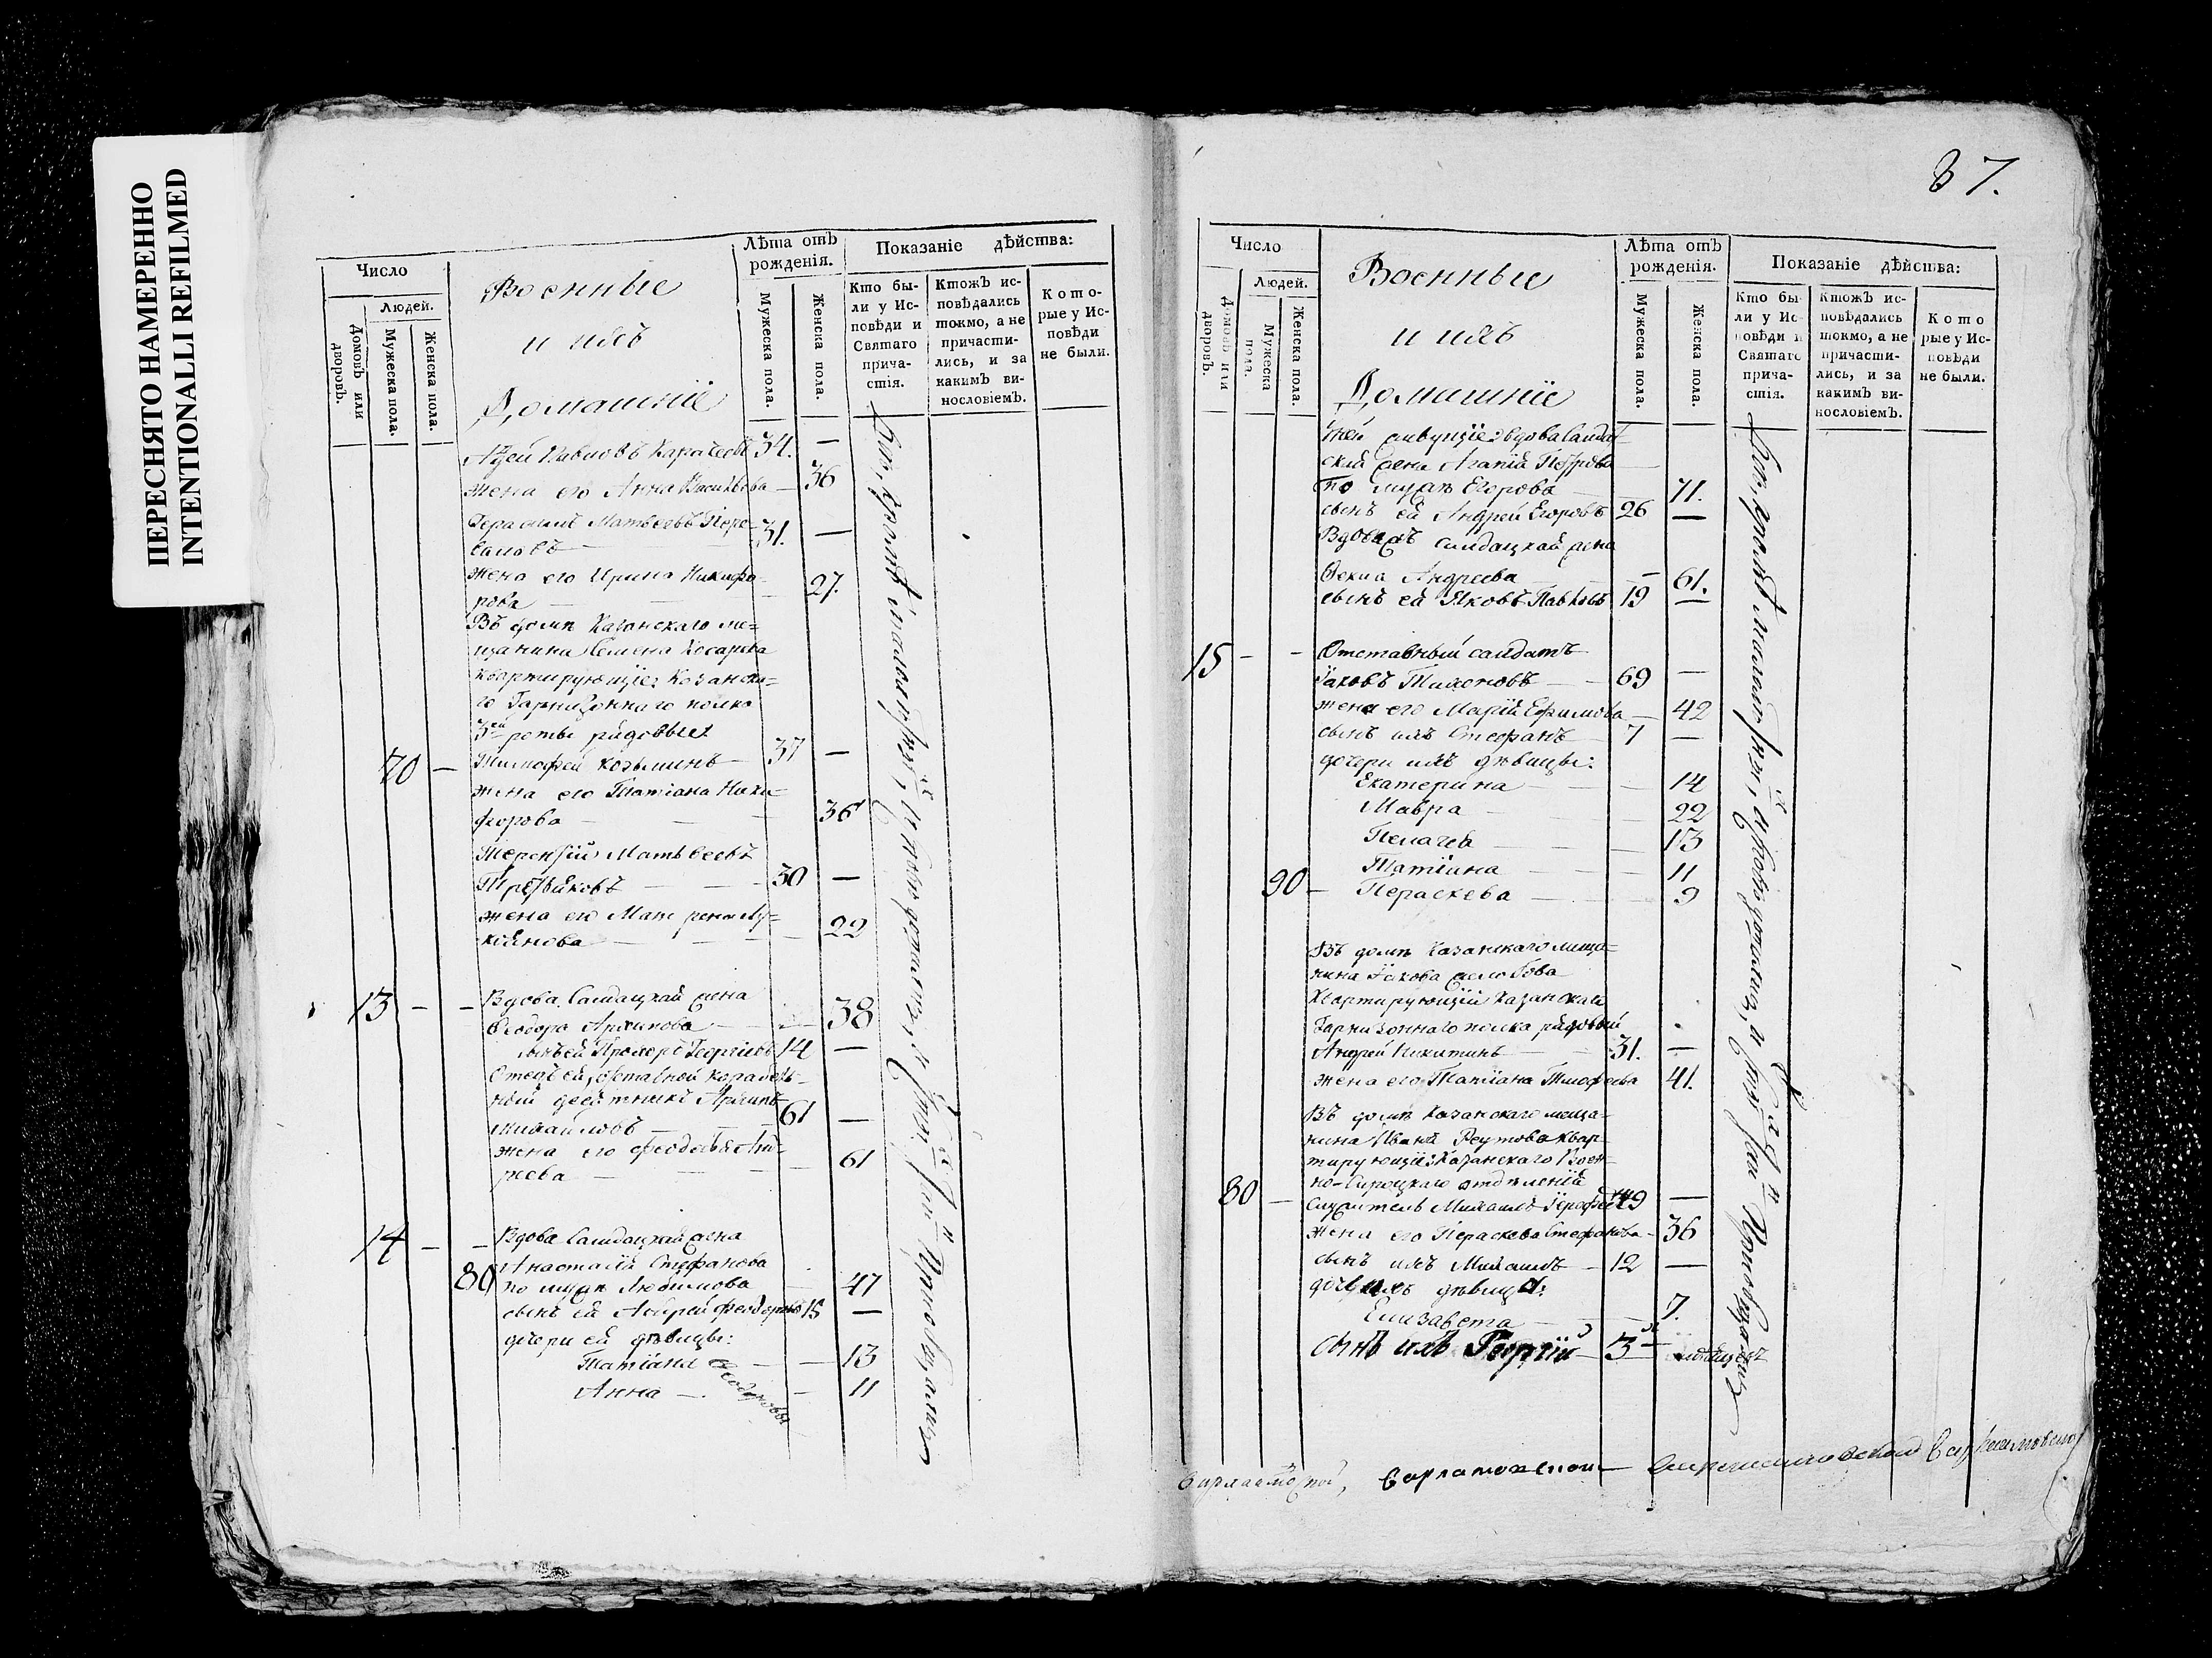 ПЕРЕСНЯТО НАМЕРЕННО
INTENTIONALLI REFILMED
Число
Людей.
Домовъ или дворовъ.
Мужеска пола.
Женска пола.
Военные
и ихъ
Домашніе
Лѣта отъ рожденія.
Мужеска пола.
Женска пола.
Показаніе дѣйства:
Кто бы-
ли у Ис-
повѣди и
Святаго
прича-
стія.
Ктожъ ис-
повѣдались
токмо, а не
причасти-
лись, и за
какимъ ви-
нословіемъ.
Кото-
рые у Ис-
повѣди
не были.
34. —
жена его Анна Васильева — 36
Герасимъ Матвеевъ 31. —
жена его Ирина Никифо-
рова — 27.
Въ домѣ Казанскаго ме-
щанина Семена Косарева
квартирующіе Казанска-
го Гарнизоннаго полка
3й роты рядовые
70 — Тимофей Козьминъ 37 —
жена его Татіана Ники-
форова — 36
Терентій Матвеевъ
Третьяковъ — 30 —
жена его Матрена Лу-
коянова — 22
13 — — Вдова Салдацкая жена
Феодора Архипова — 38
сынъ ей Прохоръ Георгіевъ 14 —
Отецъ ей, отставной корабель-
ный десятникъ Архипъ
Михайловъ — 61 —
жена его Феодосья Ан-
реева — 61
14 — — Вдова Салдацкая жена
Анастасія Стефанова
80 по мужѣ Любимова — 47
сынъ ей Андрей Феодоровъ 15 —
дочери ей дѣвицы:
Татіана — 13
Анна — 11
Феодоровы
87.
Число
Людей.
Домовъ или дворовъ.
Мужеска пола.
Женска пола.
Военные
и ихъ
Домашніе
Лѣта отъ рожденія.
Мужеска пола.
Женска пола.
Показаніе дѣйства:
Кто бы-
ли у Ис-
повѣди и
Святаго
прича-
стія.
Ктожъ ис-
повѣдались
токмо, а не
причасти-
лись, и за
какимъ ви-
нословіемъ.
Кото
рые у Ис-
повѣди
не были.
вдова салдат-
ская жена Агапія Петрова
по мужѣ Егорова — 71.
сынъ ей Андрей Егоровъ 26 —
Вдова салдацкая жена
Фекла Андреева — 61.
сынъ ей Яковъ Павловъ 19 —
15 — — Отставный салдатъ
Іаковъ Тихоновъ — 69 —
жена его Марія Ефимова — 42
сынъ ихъ Стефанъ — 7 —
дочери ихъ дѣвицы:
Екатерина — 14
Мавра — 22
Пелагея — 13
Татіана — 11
90 — Параскева — 9
Въ домѣ Казанскаго меща-
нина Іакова
квартирующій Казанскаго
Гарнизоннаго полка рядовый
Андрей Никитинъ — 31. —
жена его Татіана Тимофеева 41.
Въ домѣ Казанскаго меща-
нина Ивана Реутова квар-
тирующіе: Казанскаго Воен-
но-Сироцкаго отдѣленія
80 — служитель Михаилъ 49 —
жена его Параскева Стефанова — 36
сынъ ихъ Михаилъ — 12 —
дочь ихъ дѣвица:
Елизавета — 7.
сынъ ихъ Георгій — 3 —